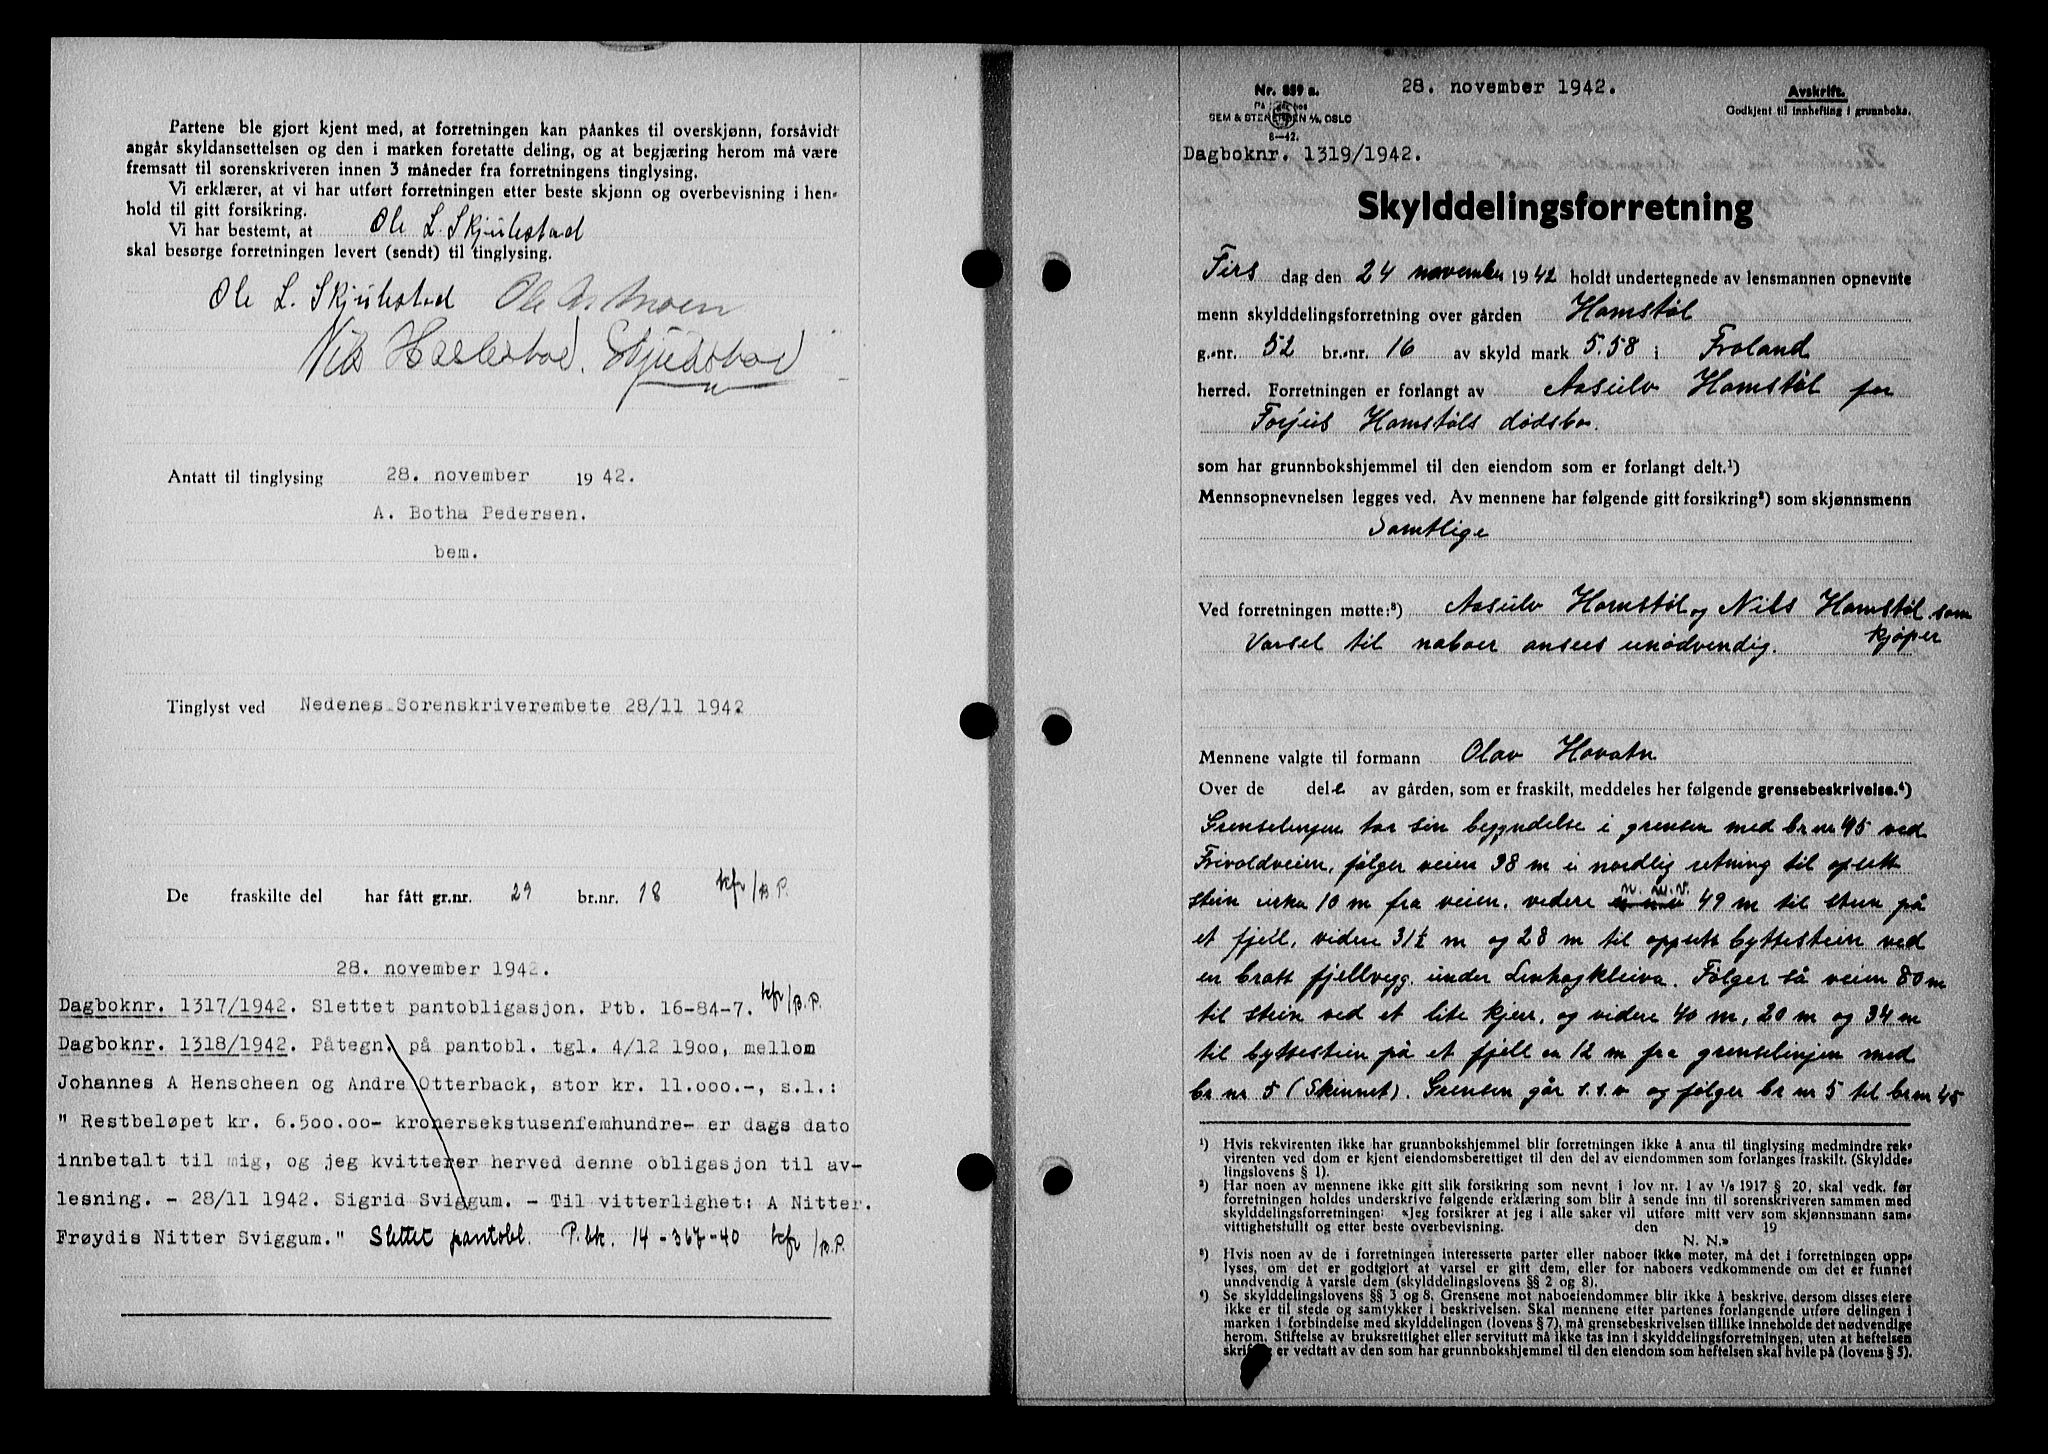 Partene ble gjort kjent med, at forretningen kan påankes til overskjønn, forsåvidt
angår skyldansettelsen og den i marken foretatte deling, og at begjæring herom må være
fremsatt til sorenskriveren innen 3 måneder fra forretningens tinglysing.
Vi erklærer, at vi har utført forretningen etter beste skjønn og overbevisning i hen-
hold til gitt forsikring.
Vi har bestemt, at Ole L. Skjulestad
skal besørge forretningen levert (sendt) til tinglysing.
Ole L. Skjulestad Ole Moen
Nils
Antatt til tinglysing 28. november 1942.
A. Botha Pedersen.
bem.
Tinglyst ved Nedenes Sorenskriverembete 28/11 1942
De fraskilte del har fått gr.nr. 29 br.nr. 18 kfr/B.P.
28. november 1942.
Dagboknr. 1317/1942. Slettet pantobligasjon. Ptb. 16-84-7. kfr/B.P.
Dagboknr. 1318/1942. Påtegn. på pantobl. tgl. 4/12 1900, mellom
Johannes A Henscheen og Andre Otterback, stor kr. 11.000.-, s.l.:
" Restbeløpet kr. 6.500.00- kronersekstusenfemhundre- er dags dato
innbetalt til mig, og jeg kvitterer herved denne obligasjon til av-
lesning. - 28/11 1942. Sigrid Sviggum. - Til vitterlighet: A Nitter.
Frøydis Nitter Sviggum." Slettet pantobl. P.bk. 14-367-40 kfr/B.P.
Nr. 859 a. 28. november 1942. Avskrift.
Godkjent til innhefting i grunnboka.
SEM & STENERSEN A/S, OSLO
8-42.
Dagboknr. 1319/1942.
Skylddelingsforretning
Tirs dag den 24 november 1942 holdt undertegnede av lensmannen opnevnte
menn skylddelingsforretning over gården Hamstøl
g.-nr. 52 br.-nr. 16 av skyld mark 5.58 i Froland
herred. Forretningen er forlangt av Aasulv Hamstøl for
Torjus Hamstøls dødsbo.
som har grunnbokshjemmel til den eiendom som er forlangt delt.¹)
Mennsopnevnelsen legges ved. Av mennene har følgende gitt forsikring²) som skjønnsmenn
Samtlige
Ved forretningen møtte:³) Aasulv Hamstøl og Nils Hamstøl som
kjøper
Varsel til naboer ansees unødvendig.
Mennene valgte til formann Olav Hovatn
Over de dele av gården, som er fraskilt, meddeles her følgende grensebeskrivelse.⁴)
Grenselinjen tar sin begyndelse i grensen med br nr 45 ved
Frivoldveien, følger veien 38 m i nordlig retning til opsatt
stein cirka 10 m fra veien, videre n. n. v. 49 m til stein på
et fjell, videre 31½ m og 28 m til oppsatt byttestein ved
en bratt fjellvegg under Levhagkleiva. Følger så veien 80 m
til stein ved et lite kjerr, og videre 40 m, 20 m og 34 m
til byttestein på et fjell ca 12 m fra grenselinjen med
br nr 5 (Skinnet). Grensen går s.s.v og følger br nr 5 til br nr 45
¹) Hvis rekvirenten ikke har grunnbokshjemmel blir forretningen ikke å anta til tinglysing medmindre rek-
virenten ved dom er kjent eiendomsberettiget til den del av eiendommen som forlanges fraskilt. (Skyldde-
lingslovens § 1).
²) Har noen av mennene ikke gitt slik forsikring som nevnt i lov nr. 1 av ¹/₆ 1917 § 20, skal vedk. før
forretningen holdes underskrive følgende erklæring som blir å sende inn til sorenskriveren sammen med
skylddelingsforretningen: «Jeg forsikrer at jeg i alle saker vil utføre mitt verv som skjønnsmann sam-
vittighetsfullt og etter beste overbevisning. den 19
N. N.»
³) Hvis noen av de i forretningen interesserte parter eller naboer ikke møter, må det i forretningen opp-
lyses, om det er godtgjort at varsel er gitt dem, eller for naboers vedkommende om det er funnet
unødvendig å varsle dem (skylddelingslovens §§ 2 og 8).
⁴) Se skylddelingslovens §§ 3 og 8. Grensene mot naboeiendommer blir ikke å beskrive, dersom disses eiere
ikke er til stede og samtykker i beskrivelsen. Skal mennene etter partenes forlangende utføre delingen i
marken i forbindelse med skylddelingen (lovens § 7), må grensebeskrivelsen tillike inneholde det nødvendige
herom. Stiftelse av bruksrettighet eller servitutt må ikke tas inn i skylddelingsforretningen, uten at heftelsen
skriftlig er vedtatt av den som har grunnbokshjemmel til den eiendom som heftelsen skal hvile på (lovens § 5).